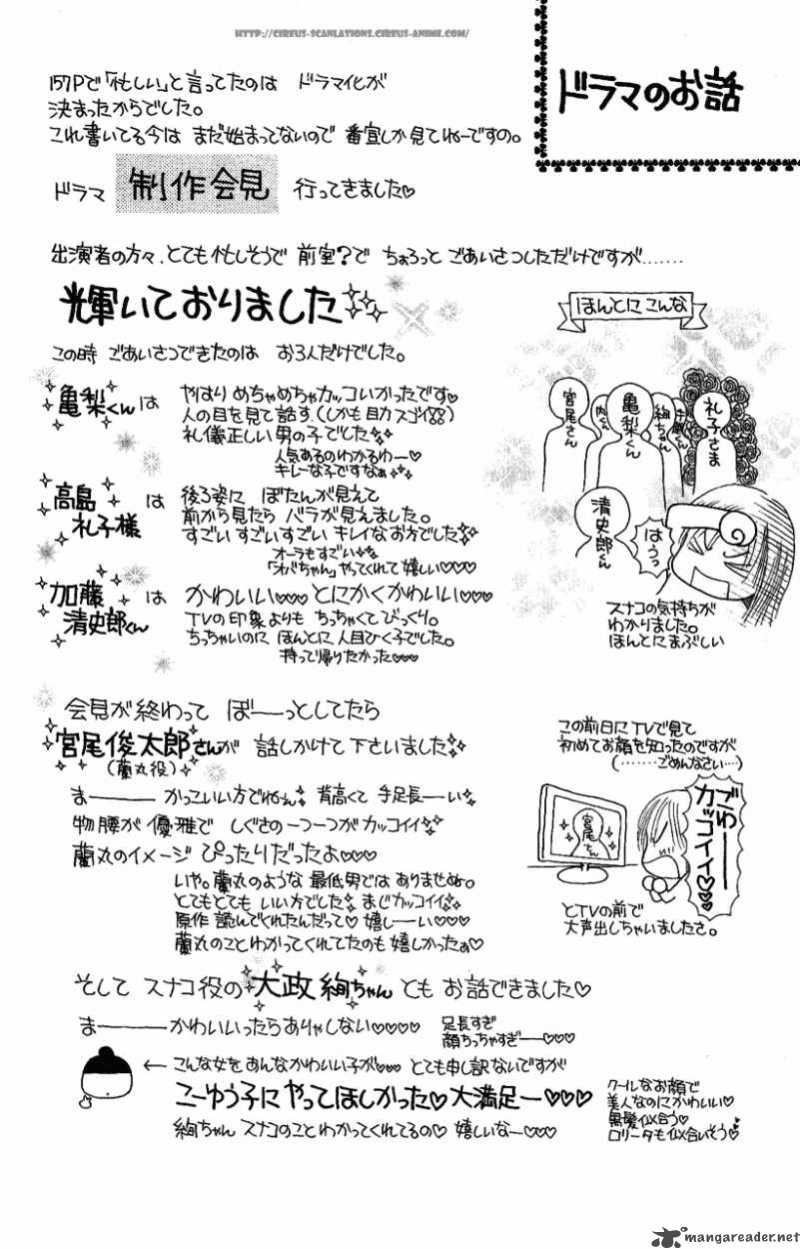 HTTP://CIRCUS-SCANLATIONS.CIRCUS-ANIME.COM/
ドラマのお話
157Pで「忙しい」と言ってたのは ドラマ化が
決まったからでした。
これ書いてる今は まだ始まってないので 番宣しか見てねーですの。
ドラマ 制作会見 行ってきました♡
出演者の方々、とても忙しそうで 前室?で ちょろっと ごあいさつしただけですが……
輝いておりました
この時 ごあいさつできたのは お3人だけでした。
亀梨くんは
やはり めちゃめちゃカッコいかったです♡
人の目を見て話す(しかも目力スゴイ)
礼儀正しい男の子でした
人気あるのわかるわー♡
キレーな子ですなぁ
高島礼子様は
後ろ姿に ぼたんが見えて
前から見たら バラが見えました。
すごい すごい すごい キレイなお方でした
オーラもすごい
「オバちゃん」やってくれて嬉しい♡♡♡
加藤清史郎くんは
かわいい♡♡♡ とにかくかわいい♡♡♡
TVの印象よりも ちっちゃくてびっくり。
ちっちゃいのに ほんとに人目ひく子でした。
持って帰りたかった♡♡♡
ほんとにこんな
宮尾さん
内くん
亀梨くん
絢ちゃん
手越くん
礼子さま
清史郎くん
はうっ
スナコの気持ちが
わかりました。
ほんとにまぶしい
会見が終わって ぼーーっとしてたら
宮尾俊太郎さんが 話しかけて下さいました
(蘭丸役)
まーーーー かっこいい方でねぇ 背高くて 手足長ーい
物腰が優雅で しぐさの一つ一つがカッコイイ
蘭丸のイメージ ぴったりだったよ♡♡♡
いや。蘭丸のような 最低男では ありませぬ。
とてもとても いい方でした まじカッコイイ
原作 読んでくれたんだって♡ 嬉しーい♡♡♡
蘭丸のことわかってくれてたのも 嬉しかったぁ♡
この前日にTVで見て
初めてお顔を知ったのですが
(……ごめんなさい…)
宮尾さん
ブわーー
カッコイイ♡♡
とTVの前で
大声出しちゃいましたさ。
そして スナコ役の 大政絢ちゃん とも お話できました♡
まーーーー かわいいったらありゃしない♡♡♡♡
足長すぎ
顔ちっちゃすぎーー♡♡♡
← こんな女をあんなかわいい子が♡♡♡ とても申し訳ないですが
こーゆう子に やってほしかった♡ 大満足ー♡♡♡
絢ちゃん スナコのこと わかってくれてるの♡ 嬉しいなー♡♡♡
クールなお顔で
美人なのにかわいい♡
黒髪似合う♡
ロリータも似合いそう♡
mangareader.net